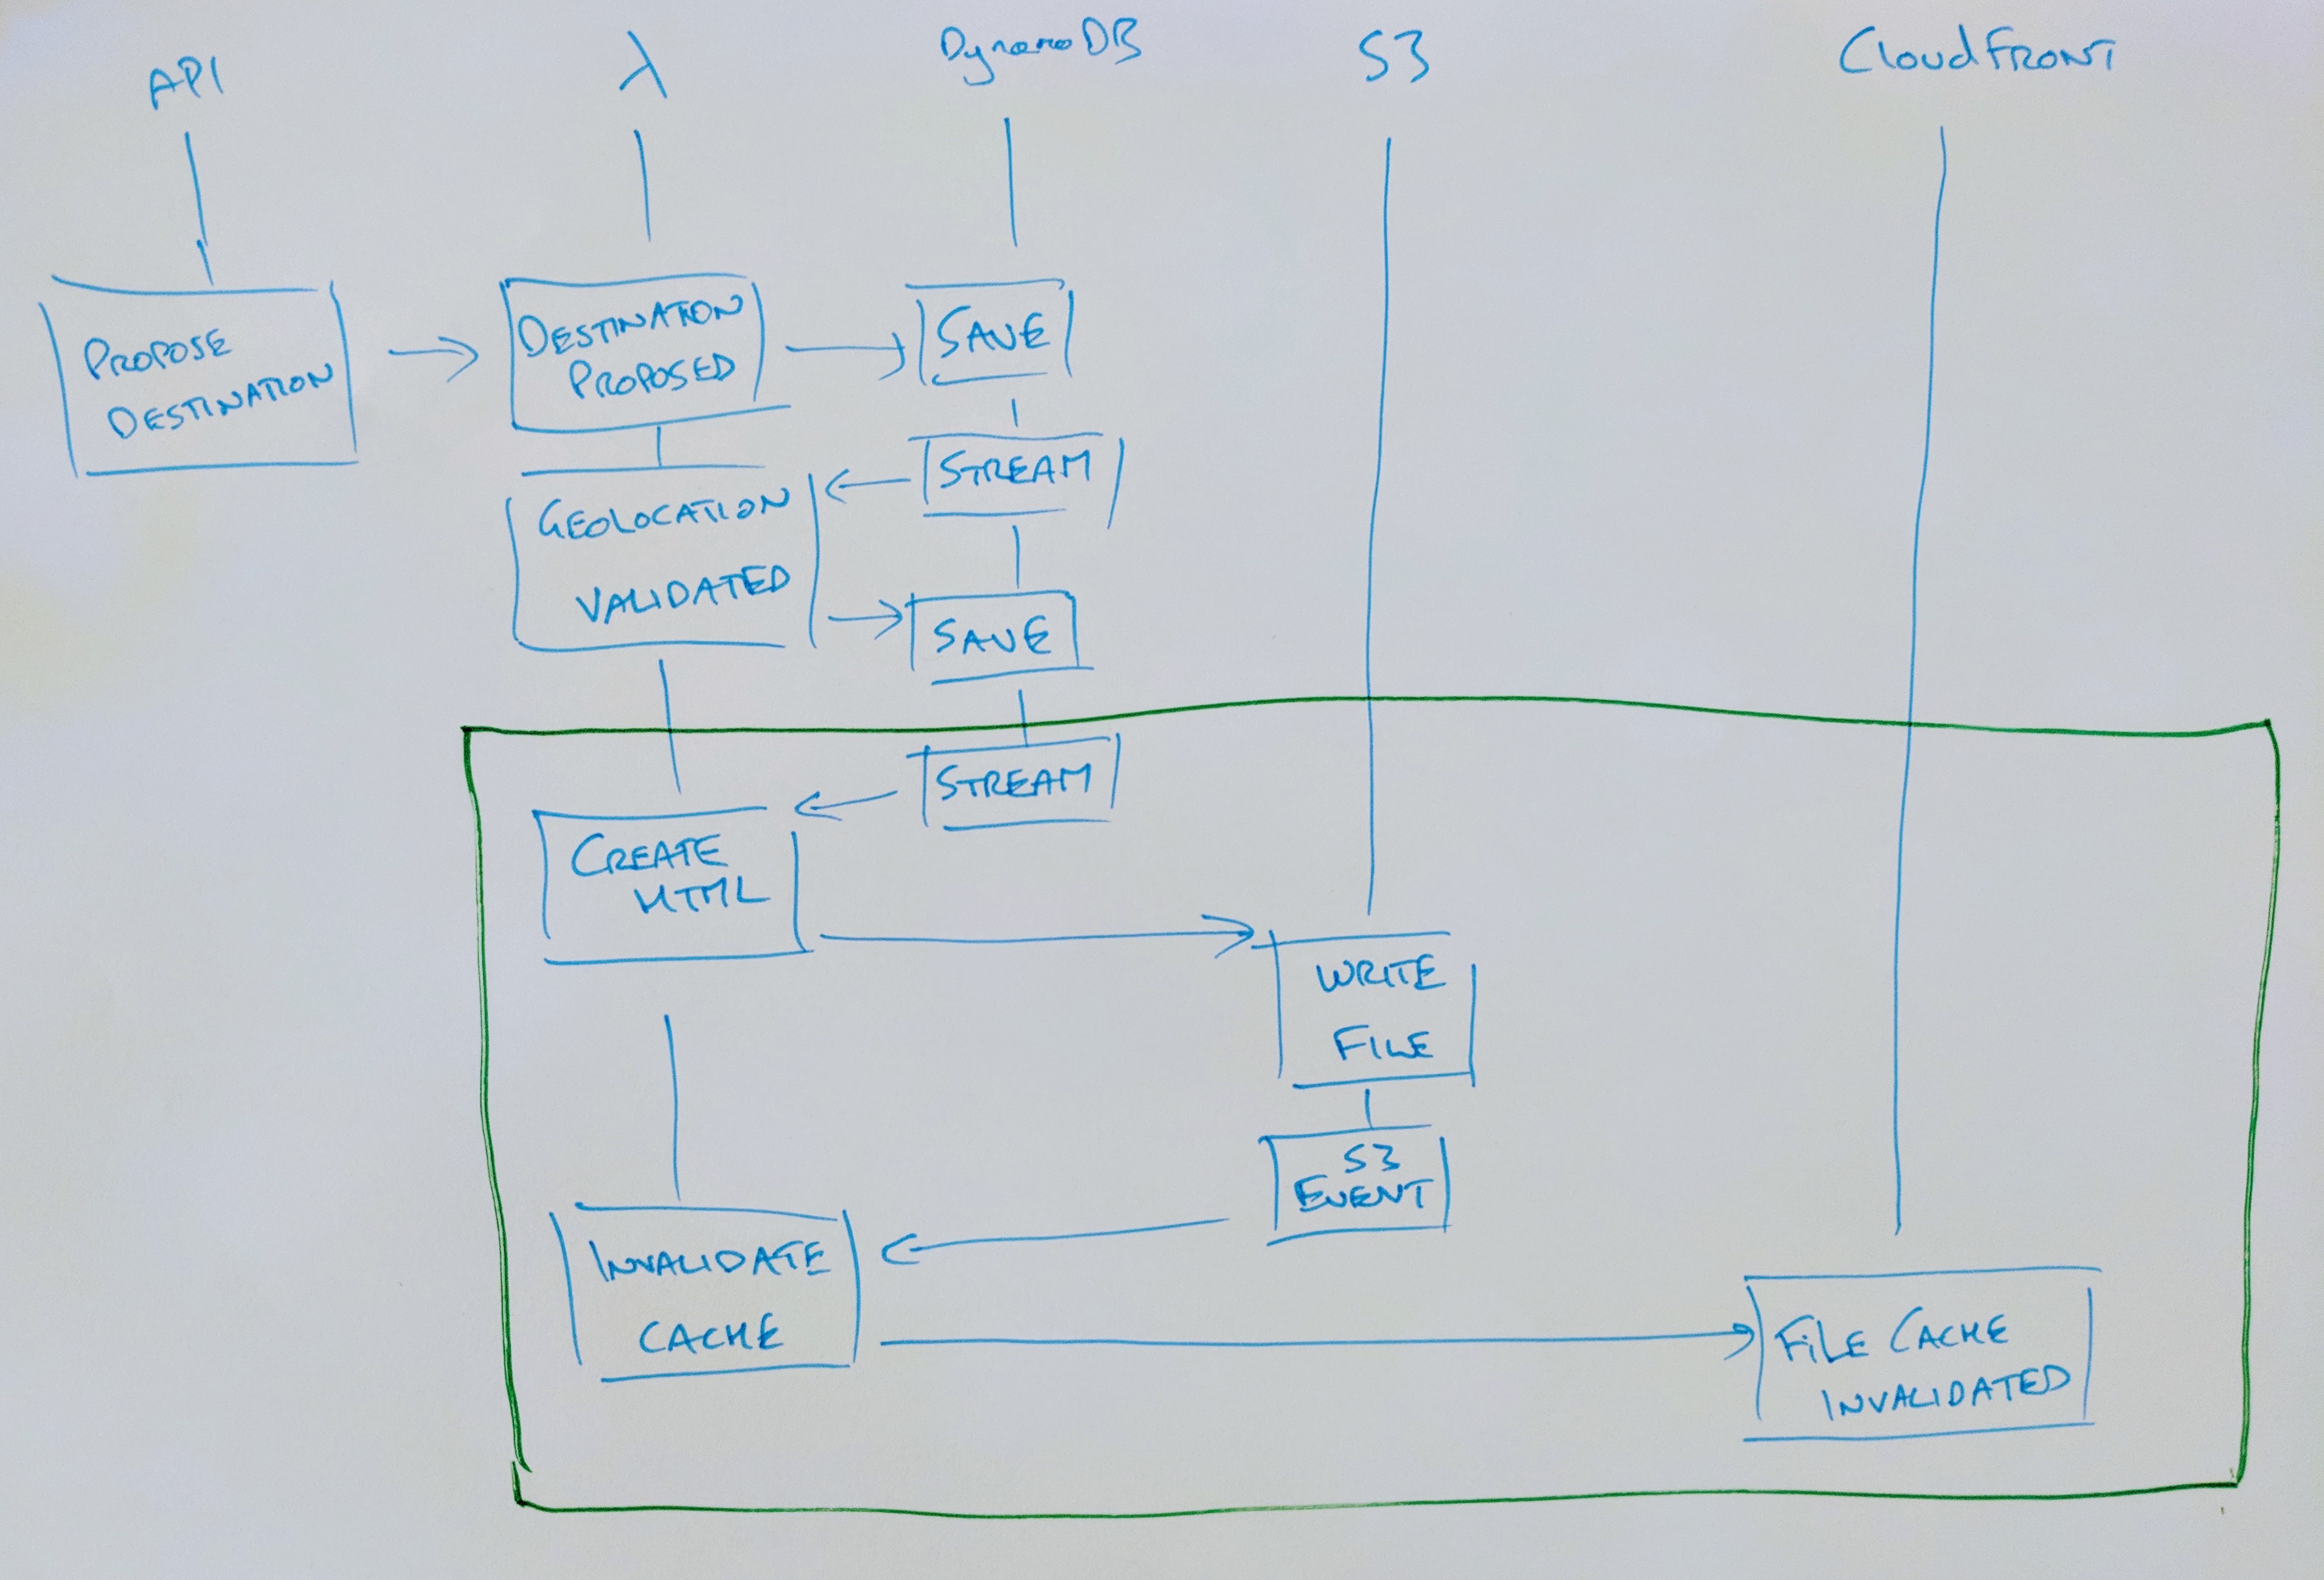 API
λ
DynamoDB
S3
CloudFRONT
PROPOSE
DESTINATION
DESTINATION
PROPOSED
SAVE
STREAM
GEOLOCATION
VALIDATED
SAVE
STREAM
CREATE
HTML
WRITE
FILE
S3
EVENT
INVALIDATE
CACHE
FiLE CACHE
INVALIDATED